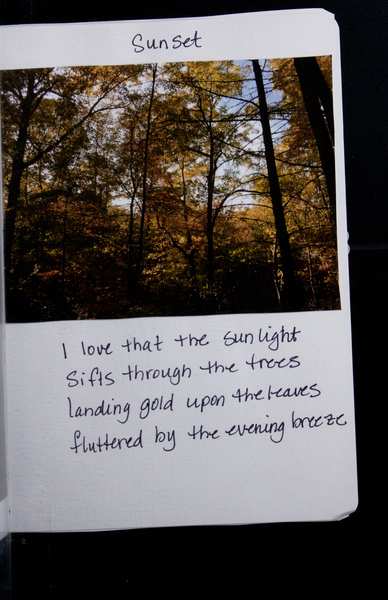 Sunset
I love that the sunlight
Sifts through the trees
landing gold upon the leaves
fluttered by the evening breeze